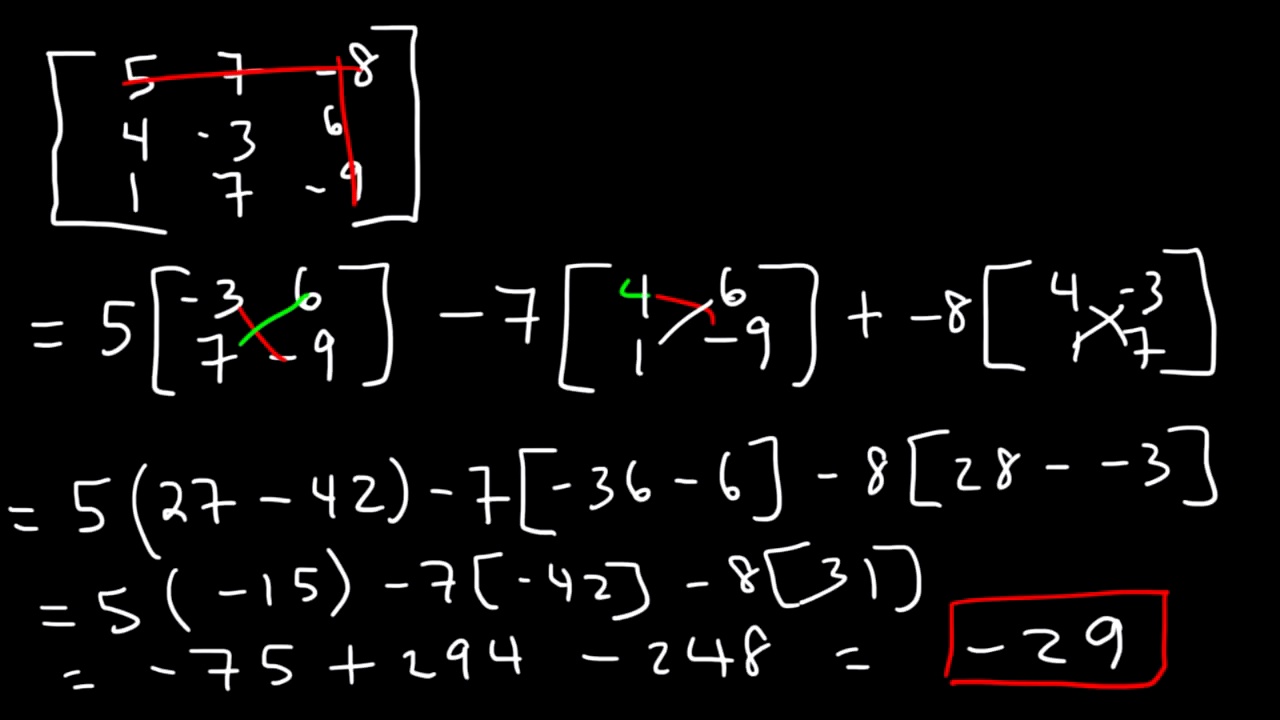 5 7 -8
4 -3 6
1 7 -9
= 5 [ -3 6 ] - 7 [ 4 6 ] + -8 [ 4 -3 ]
7 -9 1 -9 1 7
= 5 (27 - 42) - 7 [-36 - 6] - 8 [28 - -3]
= 5 (-15) - 7 [-42] - 8 [31]
= -75 + 294 - 248 = -29